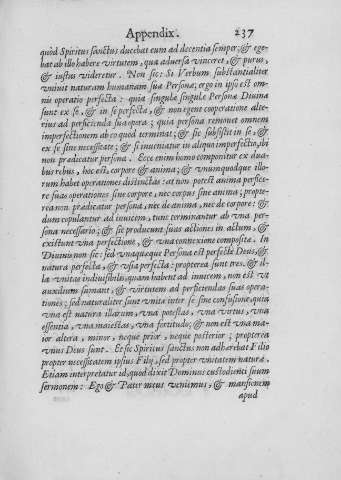 Appendix. 237
quòd Spiritus sanctus ducebat eum ad decentia semper; & ege-
bat ab illo habere virtutem, qua aduersa vinceret, & purus,
& iustus videretur. Non sic: Si Verbum substantialiter
vniuit naturam humanam suæ Personæ; ergo in ipso est om-
nis operatio perfecta: quia singulæ singulæ Personæ Diuinæ
sunt ex se, & in se perfectæ, & non egent cooperatione alte-
rius ad perficienda sua opera; quia persona remouet omnem
imperfectionem ab eo quod terminat; & sic subsistit in se, &
ex se sine necessitate; & si inueniatur in aliquo imperfectio, ibi
non prædicatur persona. Ecce enim homo componitur ex dua-
bus rebus, hoc est, corpore & anima; & vnumquodque illo-
rum habet operationes distinctas: at non potest anima perfice-
re suas operationes sine corpore, nec corpus sine anima; propte-
rea non prædicatur persona, nec de anima, nec de corpore: &
dum copulantur ad inuicem, tunc terminantur ab vna per-
sona necessario; & sic producunt suas actiones in actum, &
existunt vna perfectione, & vna connexione composita. In
Diuinis non sic: sed vnaquæque Persona est perfectè Deus, &
natura perfecta, & vsia perfecta: propterea sunt tres. & il-
la vnitas indiuisibilis, quam habent ad inuicem, non est vt
auxilium sumant, & virtutem ad perficiendas suas opera-
tiones; sed naturaliter sunt vnitæ inter se sine confusione, quia
vna est natura illarum, vna potestas, vna virtus, vna
essentia, vna maiestas, vna fortitudo, & non est vna ma-
ior altera, minor, neque prior, neque posterior; propterea
vnus Deus sunt. Et sic Spiritus sanctus non adhærebat Filio
propter necessitatem ipsius Filij, sed propter vnitatem naturæ.
Etiam interpretatur id, quod dixit Dominus custodienti suum
sermonem: Ego & Pater meus veniemus, & mansionem
apud